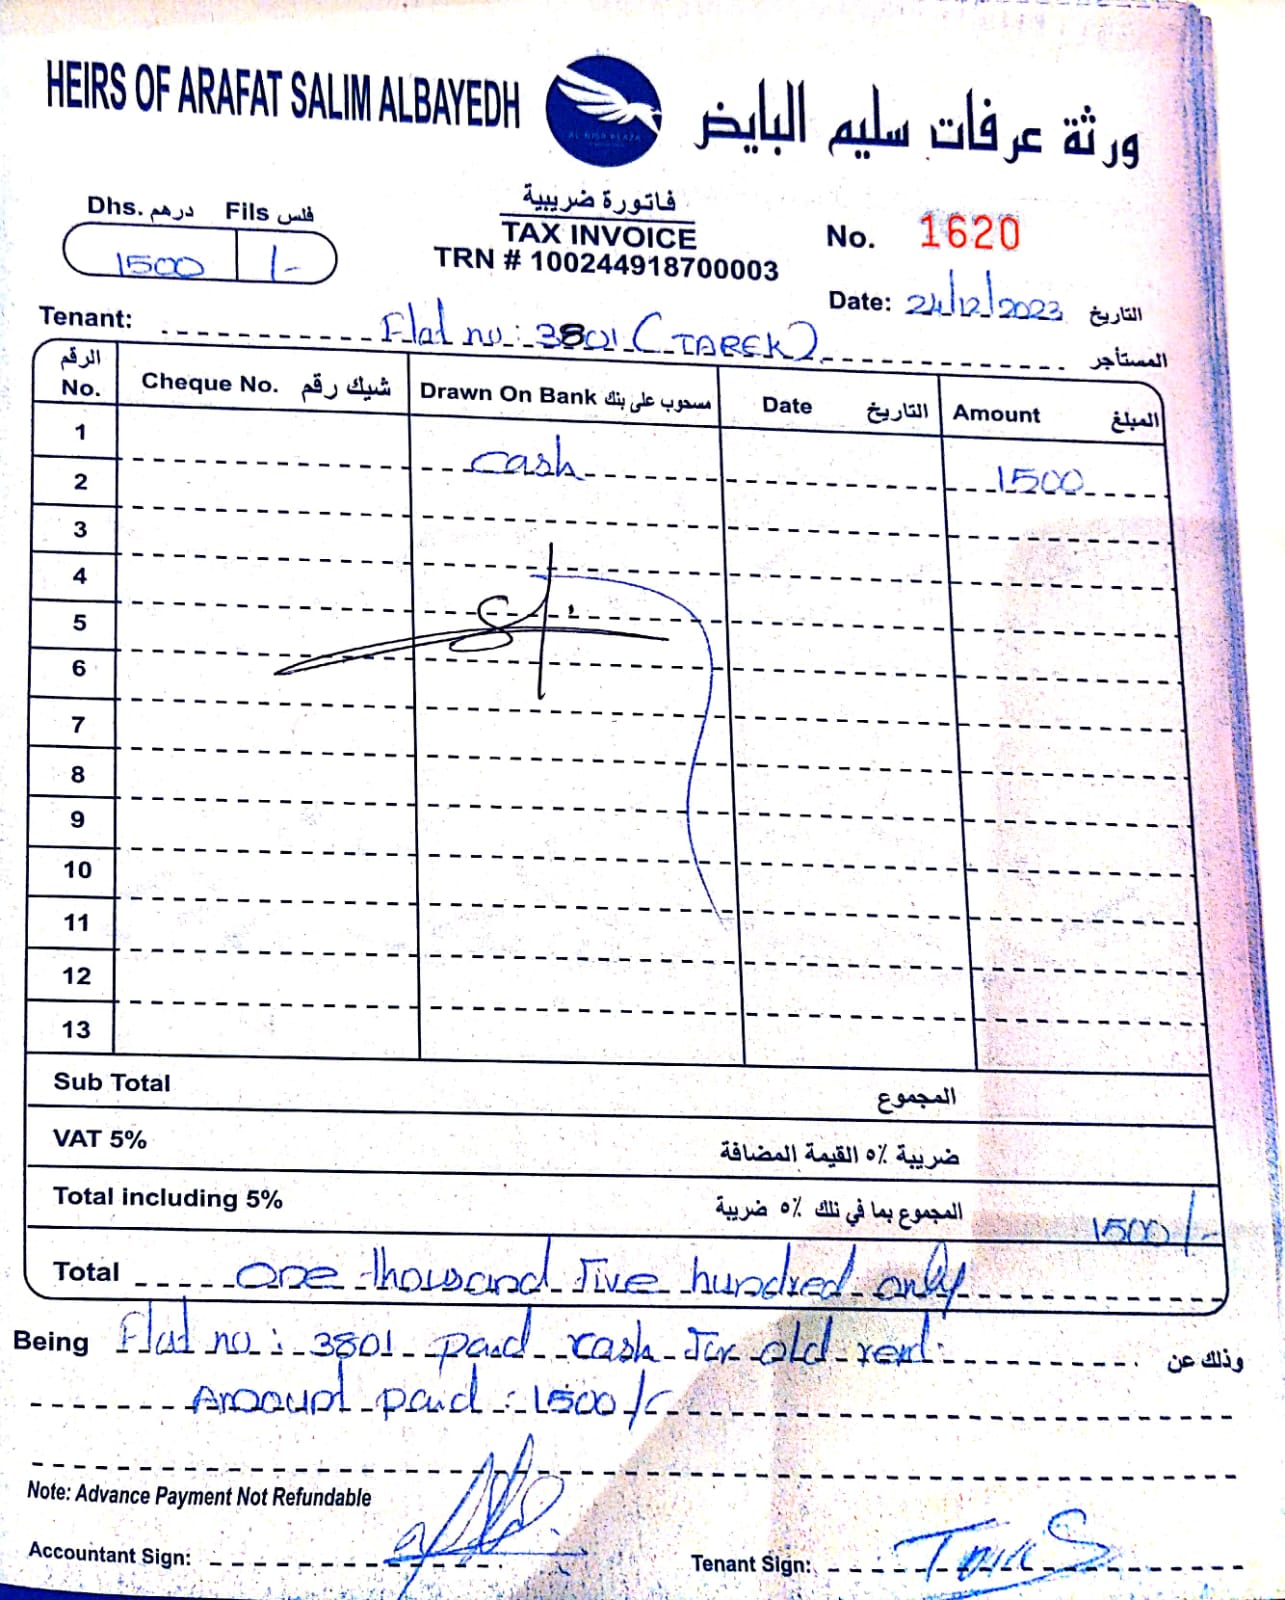 HEIRS OF ARAFAT SALIM ALBAYEDH
ورثة عرفات سليم البايض
AL RISH PLAZA
Dhs. درهم Fils فلس
1500 /-
فاتورة ضريبية
TAX INVOICE
TRN # 100244918700003
No. 1620
Date: 24/12/2023 التاريخ
Tenant: Flat no: 3801 (TAREK) المستأجر
الرقم No. Cheque No. شيك رقم Drawn On Bank مسحوب على بنك Date التاريخ Amount المبلغ
1 cash 1500
2
3
4
5
6
7
8
9
10
11
12
13
Sub Total المجموع
VAT 5% ضريبة ٥% القيمة المضافة
Total including 5% المجموع بما في ذلك ٥% ضريبة 1500/-
Total one thousand five hundred only
Being Flat no: 3801 paid cash for old rent وذلك عن
Amount paid: 1500/-
Note: Advance Payment Not Refundable
Accountant Sign: Tenant Sign: